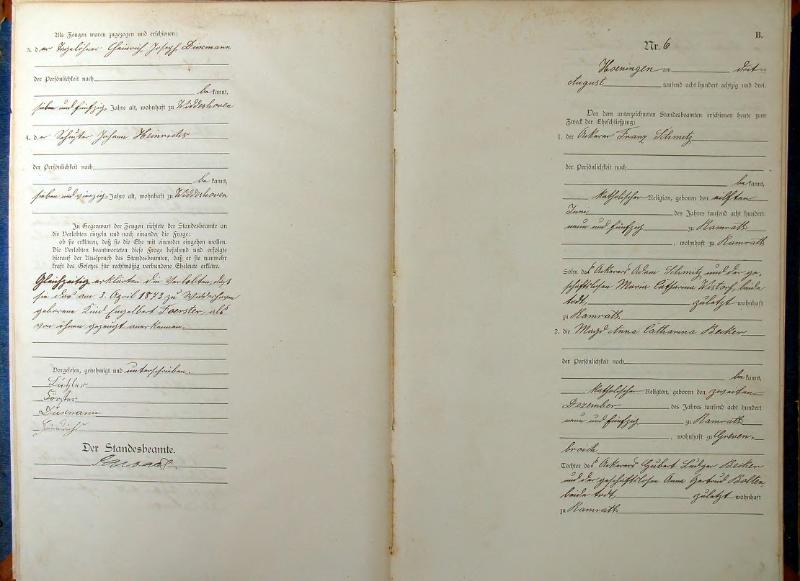 Als Zeugen waren zugezogen und erschienen:
3. der Tagelöhner Heinrich Joseph Dusemann
der Persönlichkeit nach
be kannt,
sieben und fünfzig Jahre alt, wohnhaft zu Widdeshoven
4. der Schuster Johann Heinrichs
der Persönlichkeit nach
be kannt,
sieben und vierzig Jahre alt, wohnhaft zu Widdeshoven
In Gegenwart der Zeugen richtete der Standesbeamte an
die Verlobten einzeln und nach einander die Frage:
ob sie erklären, daß sie die Ehe mit einander eingehen wollen.
Die Verlobten beantworteten diese Frage bejahend und erfolgte
hierauf der Ausspruch des Standesbeamten, daß er sie nunmehr
kraft des Gesetzes für rechtmäßig verbundene Eheleute erkläre.
Gleichzeitig erklärten die Verlobten, daß
sie das am 3. April 1873 zu Widdeshoven
geborene Kind Engelbert Foerster als
von ihnen gezeugt anerkennen.
Vorgelesen, genehmigt und unterschrieben.
Förster
Dusemann
Heinrichs
Der Standesbeamte.
B.
Nr. 6
Hoeningen am
August tausend acht hundert achtzig und drei.
Vor dem unterzeichneten Standesbeamten erschienen heute zum
Zweck der Eheschließung:
1. der Ackerer Franz Schmitz
der Persönlichkeit nach
be kannt,
katholischer Religion, geboren den elften
Juni des Jahres tausend acht hundert
neun und fünfzig zu Ramrath
, wohnhaft zu Ramrath
Sohn des Ackerers Adam Schmitz und der ge-
schäftslosen Maria Catharina beide
todt, zuletzt wohnhaft
zu Ramrath
2. die Magd Anna Catharina Becker
der Persönlichkeit nach
be kannt,
katholischer Religion, geboren den zweiten
Dezember des Jahres tausend acht hundert
neun und fünfzig zu Ramrath
, wohnhaft zu Greven-
broich
Tochter des Ackerers Becker
und der geschäftslosen Anna Gertrud
beide todt, zuletzt wohnhaft
zu Ramrath